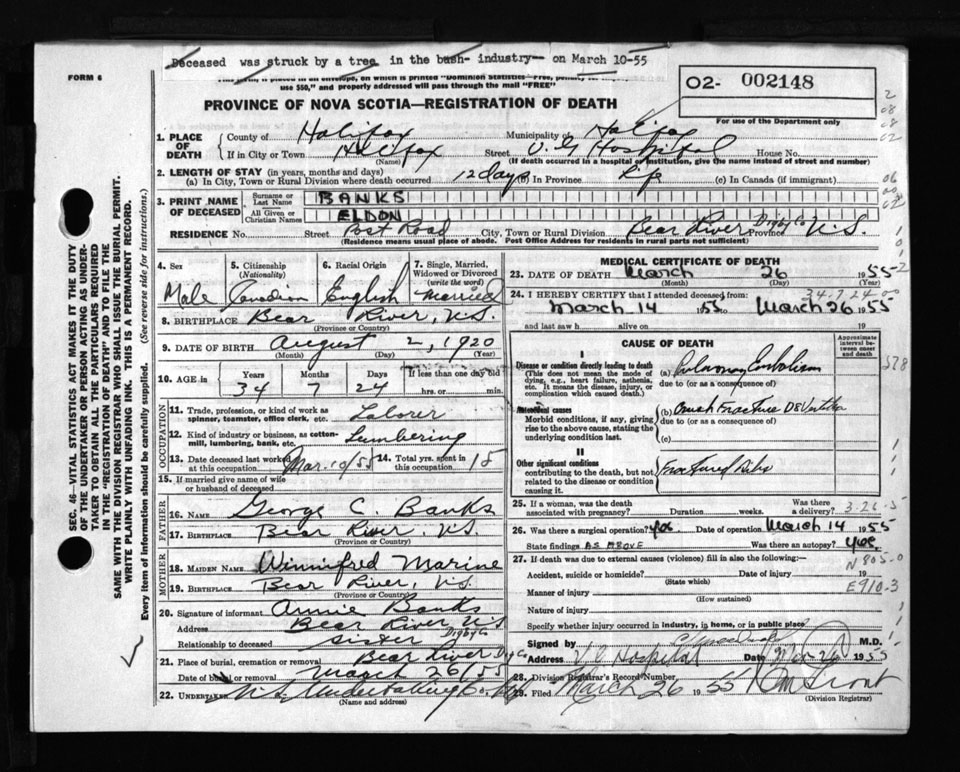 Deceased was struck by a tree in the bush- industry-- on March 10-55
FORM 6
use $50," and properly addressed will pass through the mail "FREE"
O2- 002148
For use of the Department only
PROVINCE OF NOVA SCOTIA—REGISTRATION OF DEATH
1. PLACE OF DEATH County of Halifax Municipality of Halifax
If in City or Town Halifax (Name) Street V. G Hospital House No.
(If death occurred in a hospital or institution, give the name instead of street and number)
2. LENGTH OF STAY (in years, months and days)
(a) In City, Town or Rural Division where death occurred 12 days (b) In Province Life (c) In Canada (if immigrant)
3. PRINT NAME OF DECEASED Surname or Last Name BANKS
All Given or Christian Names ELDON
RESIDENCE No. Street Post Road City, Town or Rural Division Bear River Digby Co Province N.S.
(Residence means usual place of abode. Post Office Address for residents in rural parts not sufficient)
4. Sex Male
5. Citizenship (Nationality) Canadian
6. Racial Origin English
7. Single, Married, Widowed or Divorced (write the word) Married
8. BIRTHPLACE Bear River, N.S. (Province or Country)
9. DATE OF BIRTH August 2, 1920
(Month) (Day) (Year)
10. AGE in Years Months Days If less than one day old
34 7 24 hrs. or min.
OCCUPATION
11. Trade, profession, or kind of work as spinner, teamster, office clerk, etc. Laborer
12. Kind of industry or business, as cotton-mill, lumbering, bank, etc. Lumbering
13. Date deceased last worked at this occupation Mar. 10/55 14. Total yrs. spent in this occupation 15
15. If married give name of wife or husband of deceased
FATHER
16. NAME George C Banks
17. BIRTHPLACE Bear River, N.S. (Province or Country)
MOTHER
18. MAIDEN NAME Winnifred Marine
19. BIRTHPLACE Bear River, N.S. (Province or Country)
20. Signature of informant Annie Banks
Address Bear River N.S Digby Co
Relationship to deceased sister
21. Place of burial, cremation or removal Bear River Dig Co
Date of burial or removal March 26/55
22. UNDERTAKER N.S. Undertaking Co.
(Name and address)
MEDICAL CERTIFICATE OF DEATH
23. DATE OF DEATH March 26 1955
(Month) (Day)
24. I HEREBY CERTIFY that I attended deceased from:
March 14 1955 to March 26 1955
and last saw h alive on 19
CAUSE OF DEATH
Approximate interval between onset and death
I
Disease or condition directly leading to death (This does not mean the mode of dying, e.g., heart failure, asthenia, etc. It means the disease, injury, or complication which caused death.)
(a) Pulmonary Embolism
due to (or as a consequence of)
Antecedent causes
Morbid conditions, if any, giving rise to the above cause, stating the underlying condition last.
(b) Crush Fracture D8 Vertebra
due to (or as a consequence of)
(c)
II
Other significant conditions contributing to the death, but not related to the disease or condition causing it.
Fractured Ribs
25. If a woman, was the death associated with pregnancy? Duration weeks. Was there a delivery? 3-26-5
26. Was there a surgical operation? yes Date of operation March 14 1955
State findings AS ABOVE Was there an autopsy? yes
27. If death was due to external causes (violence) fill in also the following: N 805-0
Accident, suicide or homicide? (State which) Date of injury 19
E910.3
Manner of injury (How sustained)
Nature of injury
Specify whether injury occurred in industry, in home, or in public place
Signed by M.D.
Address V G Hospital Date 1955
28. Division Registrar's Record Number
29. Filed March 26 1955
(Division Registrar)
SEC. 46—VITAL STATISTICS ACT MAKES IT THE DUTY
OF THE UNDERTAKER OR PERSON ACTING AS UNDER-
TAKER TO OBTAIN ALL THE PARTICULARS REQUIRED
IN THE "REGISTRATION OF DEATH" AND TO FILE THE
SAME WITH THE DIVISION REGISTRAR WHO SHALL ISSUE THE BURIAL PERMIT.
WRITE PLAINLY WITH UNFADING INK. THIS IS A PERMANENT RECORD.
Every item of information should be carefully supplied. (See reverse side for instructions.)